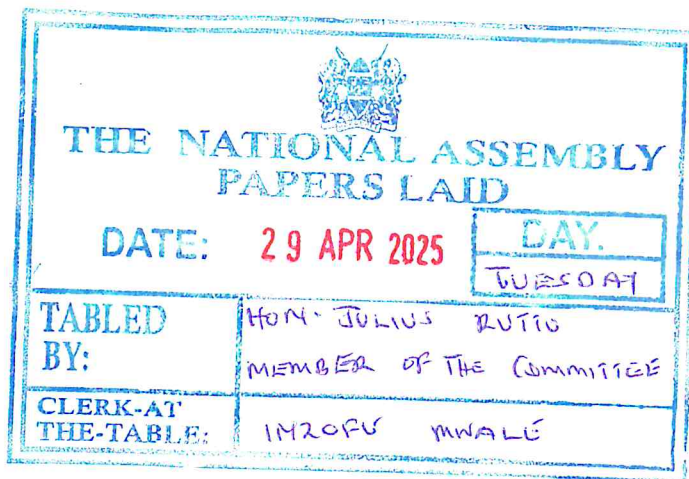 THE NATIONAL ASSEMBLY
PAPERS LAID
DATE: 29 APR 2025
DAY.
TUESDAY
TABLED BY:
HON. JULIUS RUTTO
MEMBER OF THE COMMITTEE
CLERK-AT THE-TABLE:
INZOFU MWALE